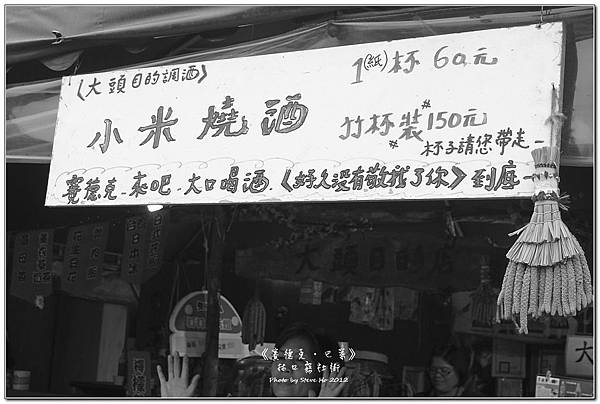 《大頭目的調酒》
1(紙)杯 60元
小米燒酒
竹杯裝#150元
*杯子請您帶走-
賽德克-來吧-大口喝酒.《好久沒有敬我了你》到底-
大頭目的店
《賽德克·巴萊》
林口霧社街
Photo by Steve Ho 2012
大